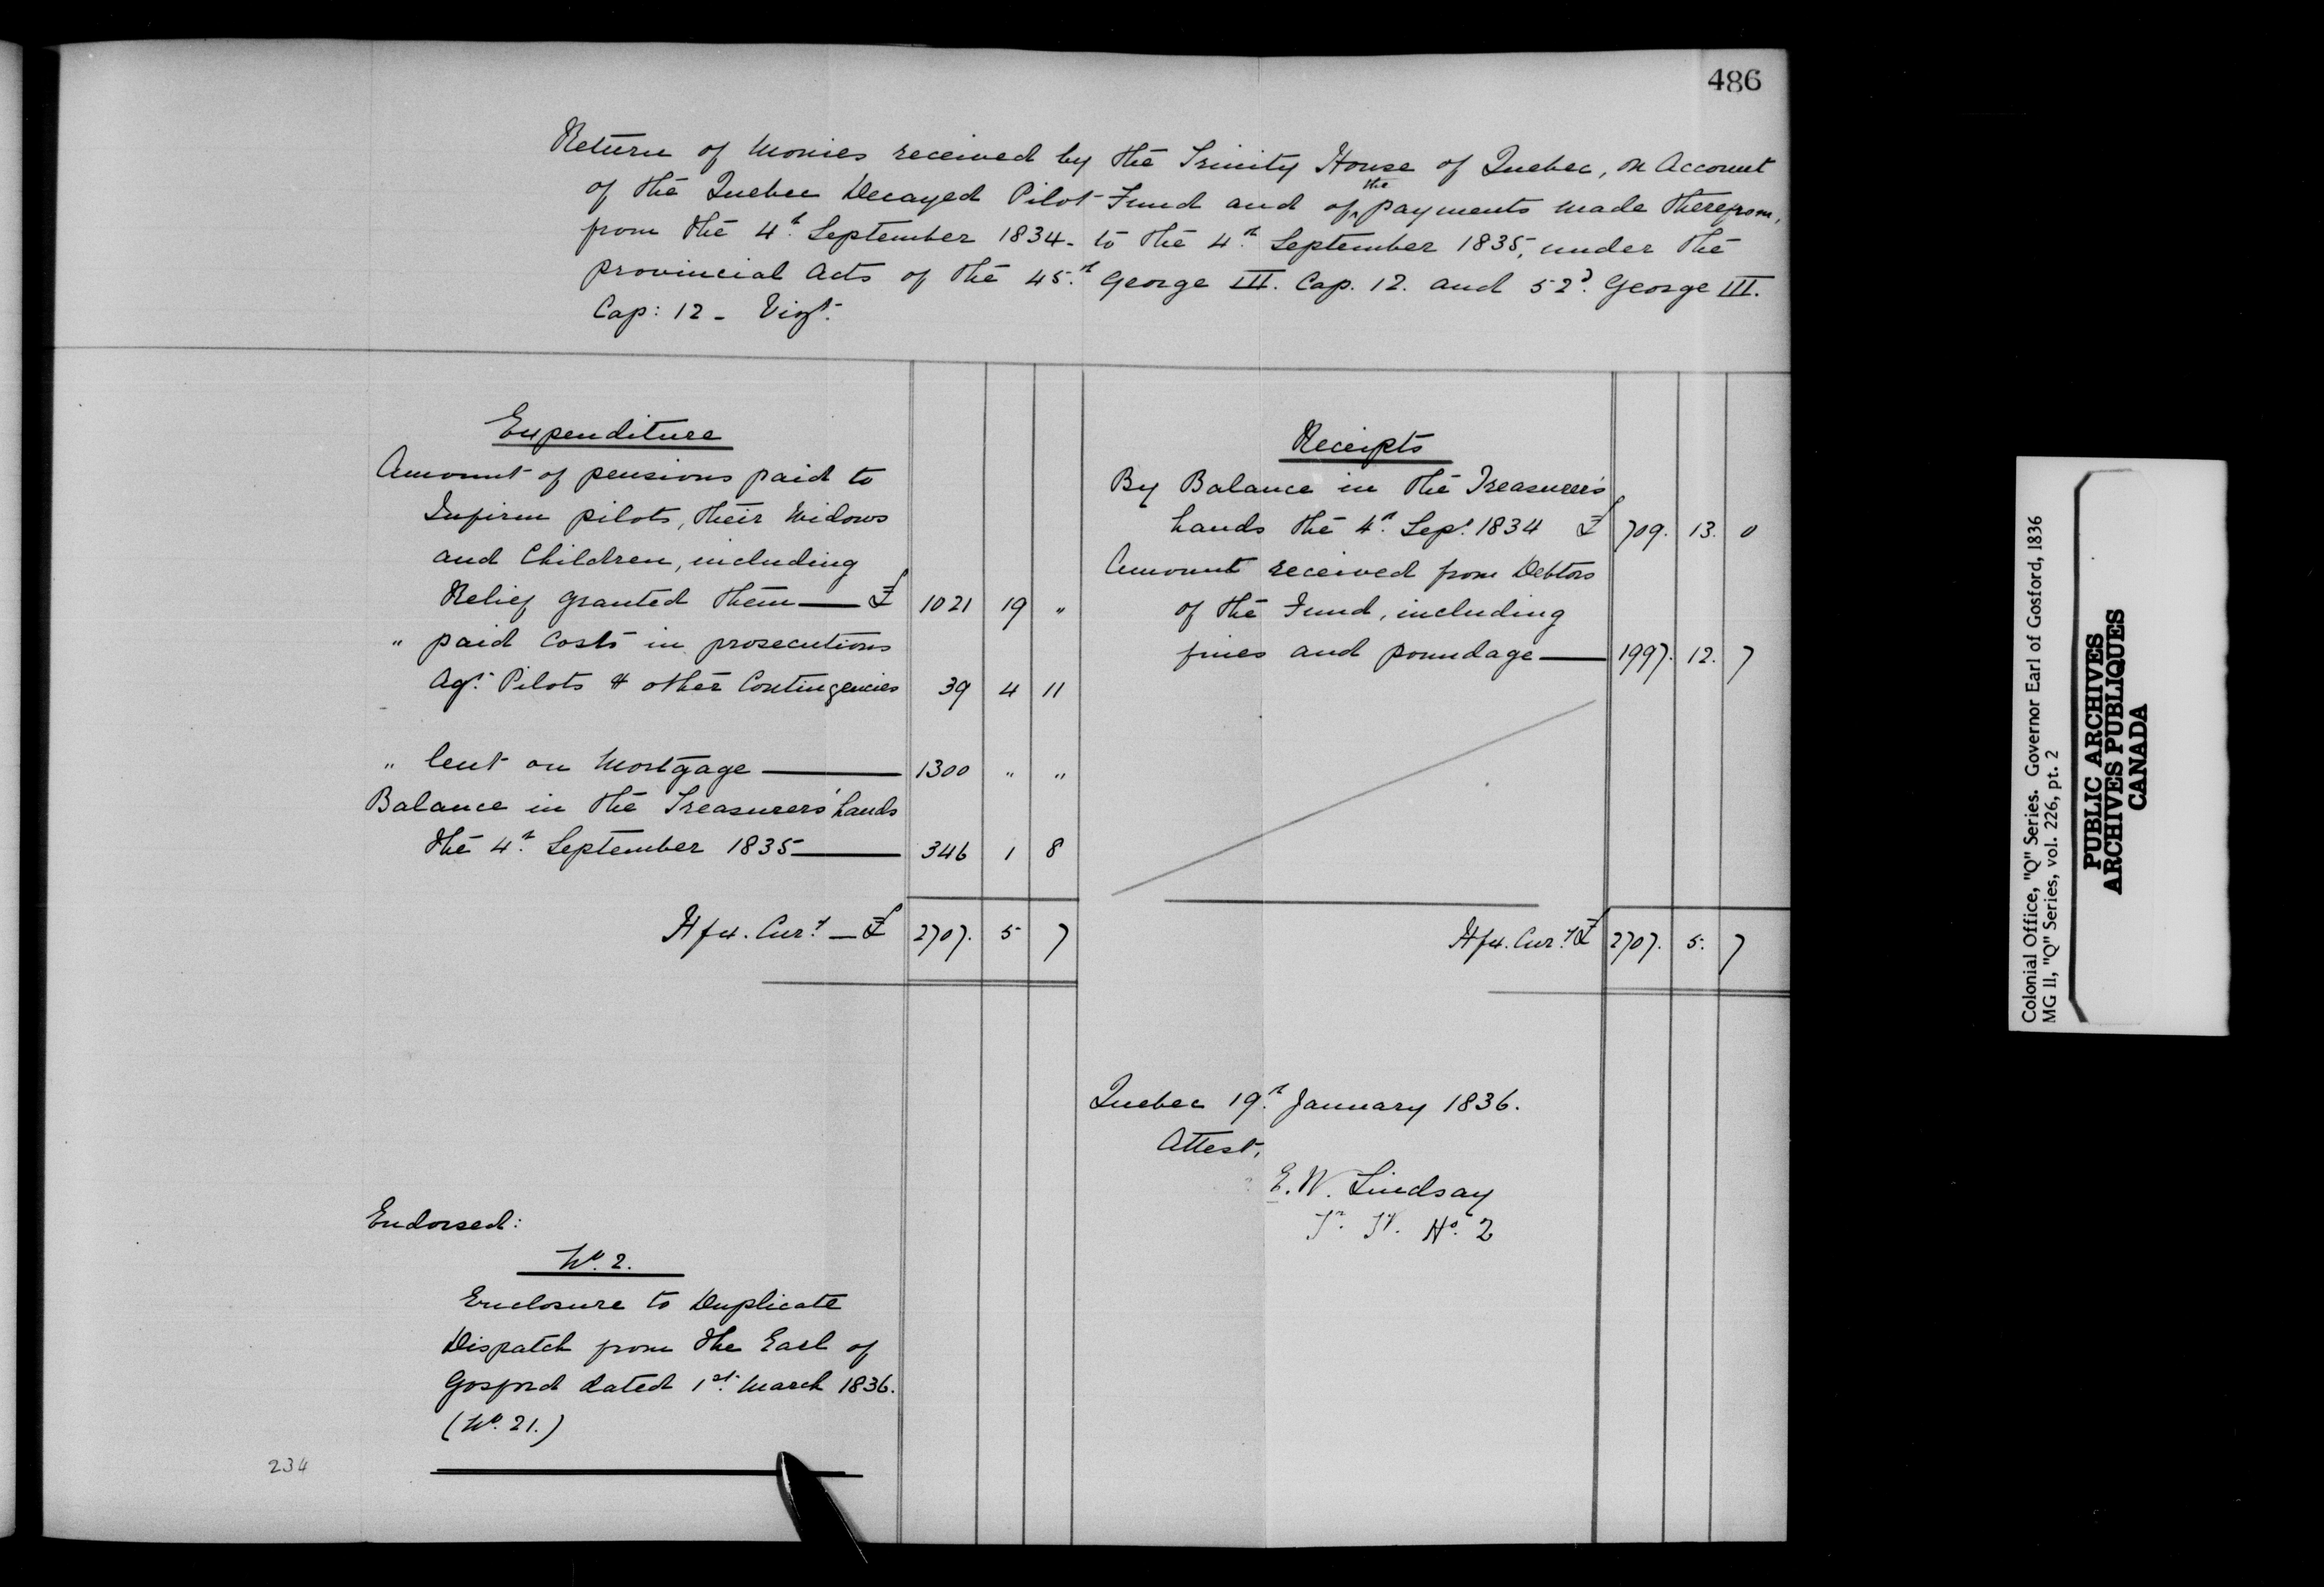 486
Return of Monies received by the Trinity House of Quebec, on Account
of the Quebec Decayed Pilot Fund and of the payments made therefrom,
from the 4th September 1834 - to the 4th September 1835, under the
Provincial Acts of the 45th George III. Cap. 12. and 52d George III.
Cap: 12 - Vizt.
Expenditure
Amount of pensions paid to
Infirm pilots, their Widows
and Children, including
Relief granted them — £ 1021 19 "
" paid Costs in prosecutions
Agt. Pilots & other Contingencies 39 4 11
" lent on Mortgage — 1300 " "
Balance in the Treasurers' hands
the 4th September 1835 — 346 1 8
Hfx. Cury. — £ 2707. 5 7
Receipts
By Balance in the Treasurer's
hands the 4th Sept. 1834 £ 709. 13. 0
Amount received from Debtors
of the Fund, including
fines and poundage — 1997. 12. 7
Hfx. Cury. £ 2707. 5. 7
Quebec 19th January 1836.
Attest,
E. W. Lindsay
Ho. 2
Endorsed:
No. 2.
Enclosure to Duplicate
Dispatch from the Earl of
Gosford dated 1st. March 1836.
(No. 21.)
234
Colonial Office, "Q" Series. Governor Earl of Gosford, 1836
MG 11, "Q" Series, vol. 226, pt. 2
PUBLIC ARCHIVES
ARCHIVES PUBLIQUES
CANADA